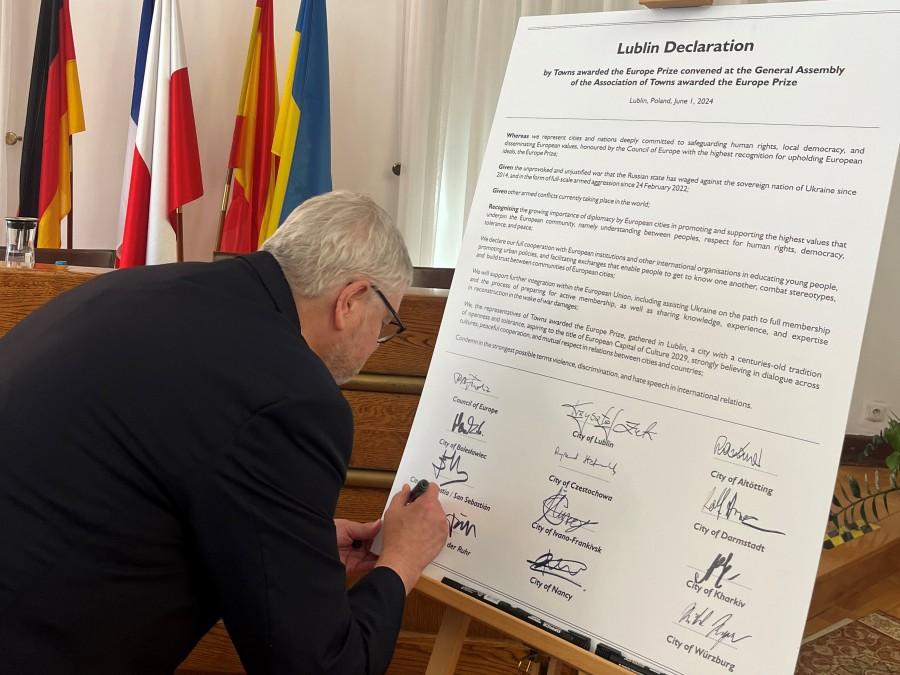 Lublin Declaration
by Towns awarded the Europe Prize convened at the General Assembly
of the Association of Towns awarded the Europe Prize
Lublin, Poland, June 1, 2024
Whereas we represent cities and nations deeply committed to safeguarding human rights, local democracy, and
disseminating European values, honoured by the Council of Europe with the highest recognition for upholding European
ideals, the Europe Prize;
Given the unprovoked and unjustified war that the Russian state has waged against the sovereign nation of Ukraine since
2014, and in the form of full-scale armed aggression since 24 February 2022;
Given other armed conflicts currently taking place in the world;
Recognising the growing importance of diplomacy by European cities in promoting and supporting the highest values that
underpin the European community, namely understanding between peoples, respect for human rights, democracy,
tolerance, and peace;
We declare our full cooperation with European institutions and other international organisations in educating young people,
promoting urban policies, and facilitating exchanges that enable people to get to know one another, combat stereotypes,
and build trust between communities of European cities;
We will support further integration within the European Union, including assisting Ukraine on the path to full membership
and the process of preparing for active membership, as well as sharing knowledge, experience, and expertise
in reconstruction in the wake of war damages;
We, the representatives of Towns awarded the Europe Prize, gathered in Lublin, a city with a centuries-old tradition
of openness and tolerance, aspiring to the title of European Capital of Culture 2029, strongly believing in dialogue across
cultures, peaceful cooperation, and mutual respect in relations between cities and countries;
Condemn in the strongest possible terms violence, discrimination, and hate speech in international relations.
Council of Europe
Krzysztof Żuk
City of Lublin
City of Altötting
City of Bolesławiec
City of Czestochowa
City of Darmstadt
/ San Sebastián
City of Ivano-Frankivsk
City of Kharkiv
der Ruhr
City of Nancy
City of Würzburg